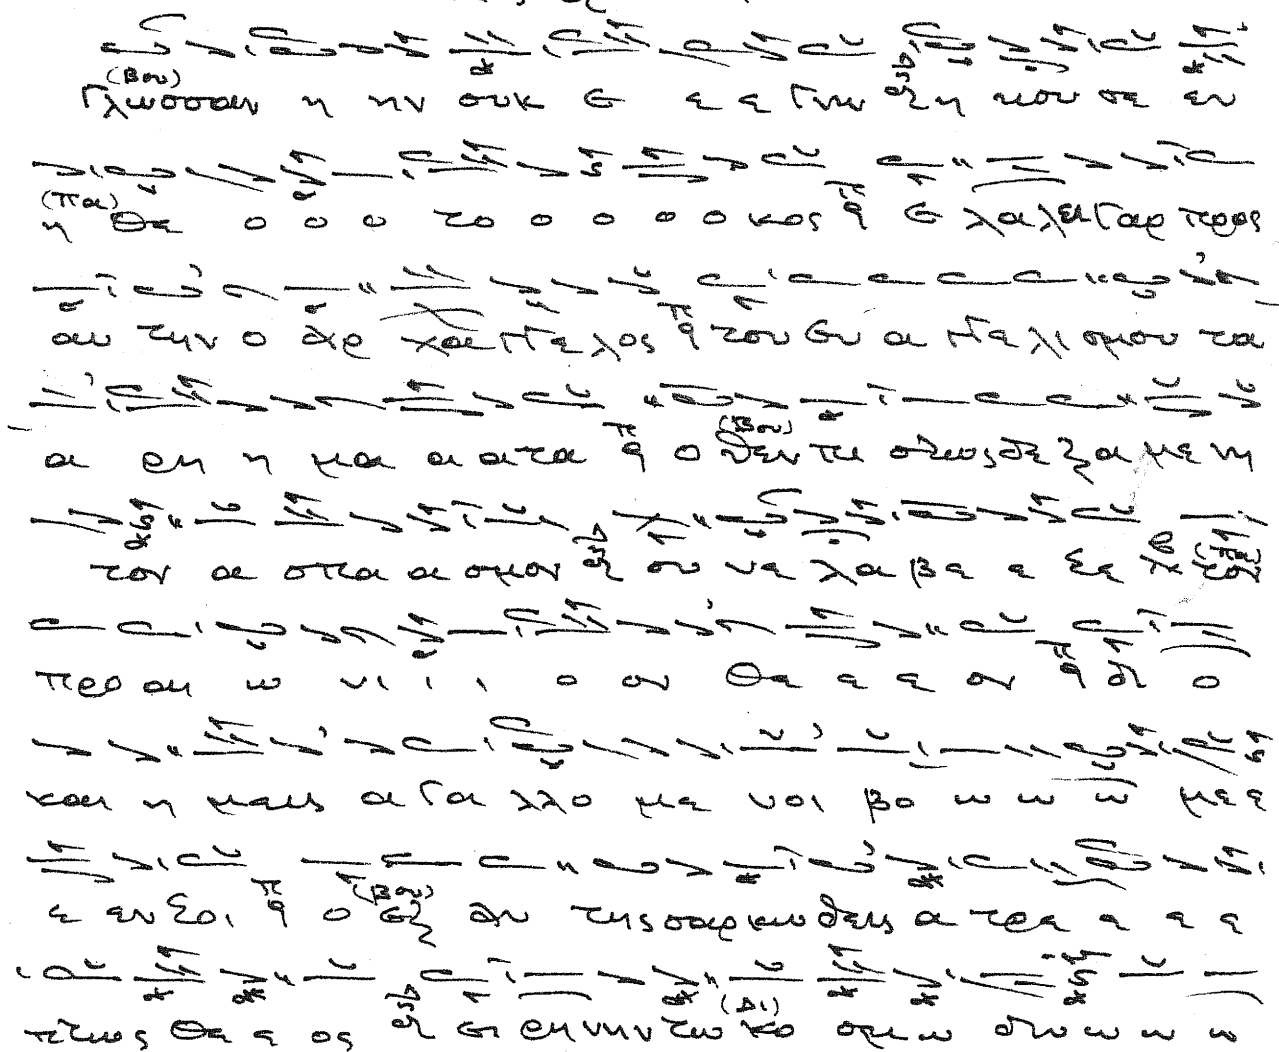 (Βου)
Γλωσσαν η ην ουκ ε ε ε Γνω η κου σε εν
(Πα)
η Θε ο ο ο το ο ο ο ο κος ε λαλει Γαρ προς
αυ την ο αρ χαγγελος του ευ α γγελι σμου τα
α ρη η μα α α τα ο θεν πι στως δε ξα με νη
(Βου)
τον α σπα α σμον συ νε λα βε ε ες τον
(Πα)
προ αι ω νι ι ι ο ον Θε ε ε ον δι ο
και η μεις α Γα λλο με νοι βο ω ω ω με ε
ε εν σοι ο εξ αυ της σαρκω θεις α τρε ε ε ε
(Βου)
πτως Θε ε ος ει ρη νην τω κο σμω δω ω ω ω
(Δι)